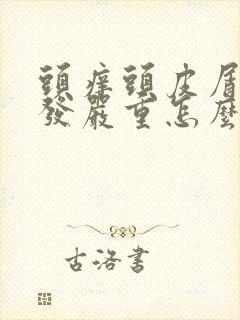 頭痒頭皮屑
發嚴重怎麼
古洛書